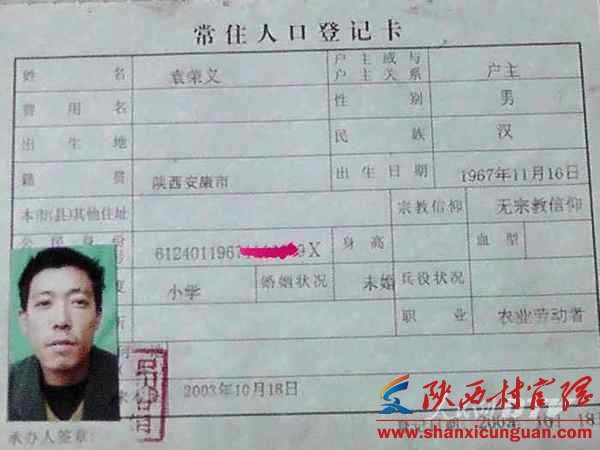 常住人口登记卡
姓 名 袁荣义 户主或与户主关系 户主
曾用名 性 别 男
出生地 民 族 汉
籍 贯 陕西安康市 出生日期 1967年11月16日
本市(县)其他住址 宗教信仰 无宗教信仰
公民身份 6124011967 9X 身高 血型
小学 婚姻状况 未婚 兵役状况
所 职 业 农业劳动者
2003年10月18日
承办人签章:
陕西村官网
www.shanxicunguan.com